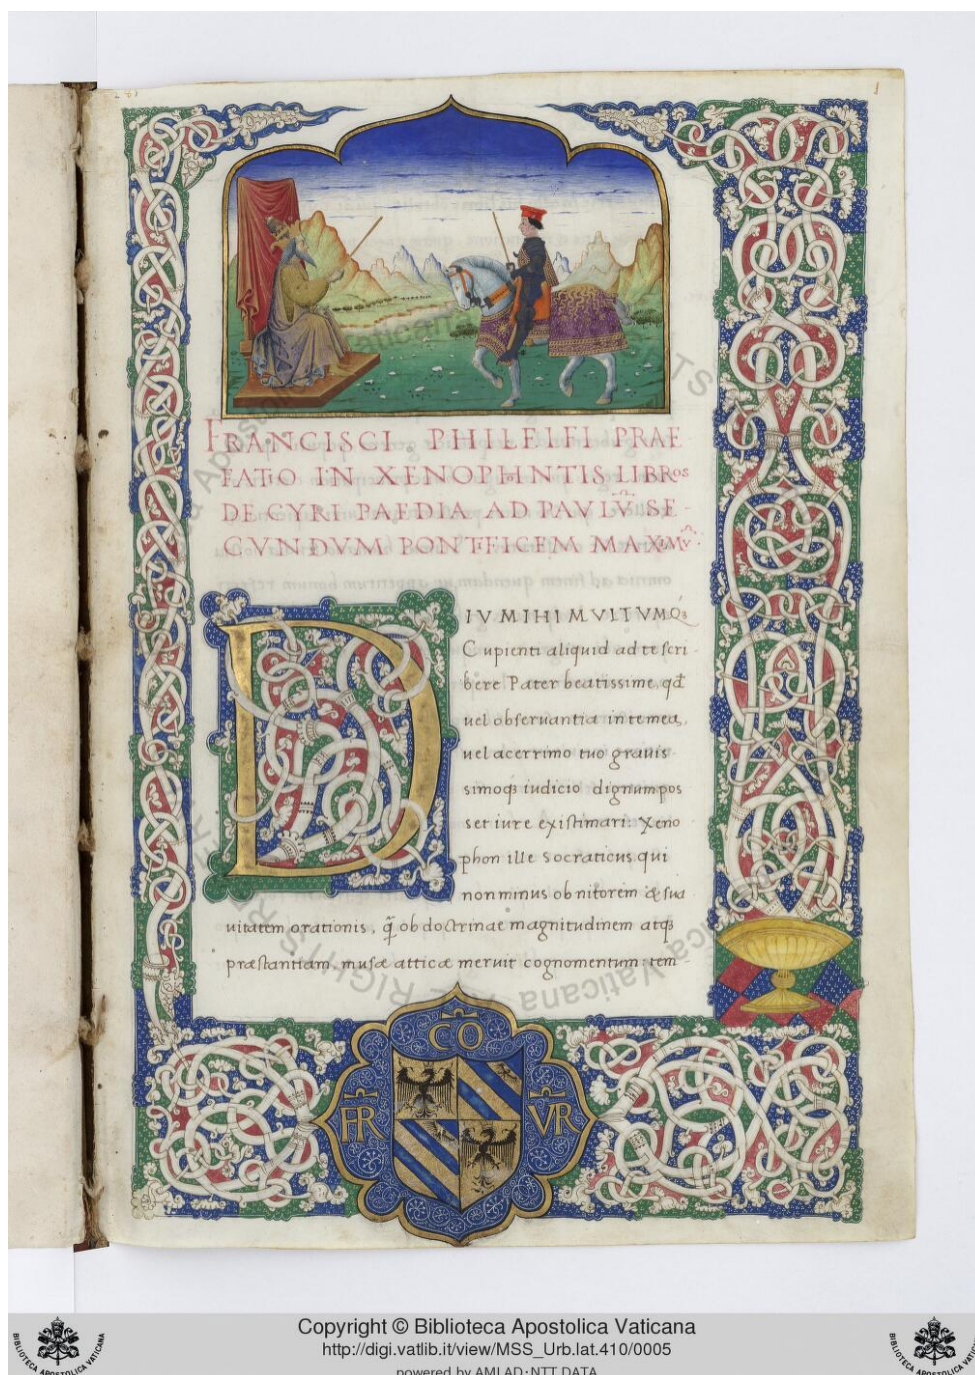 FRANCISCI . PHILELFI PRAE
FATIO IN XENOPHNTIS LIBROS
DE CYRI PAEDIA AD PAVLV̄ SE
CVNDVM PONTIFICEM MAXIMV̄.
D IV MIHI MVLTVMQ́;
Cupienti aliquid ad te scri
bere Pater beatissime, qđ
uel obseruantia in te mea,
uel acerrimo tuo grauis
simoq́; iudicio dignum pos
set iure existimari: Xeno
phon ille Socraticus qui
non minus ob nitorem & sua
uitatem orationis, q̃ ob doctrinae magnitudinem atq́;
præstantiam, musæ atticæ meruit cognomentum: tem-
CO
FR
VR
Copyright © Biblioteca Apostolica Vaticana
http://digi.vatlib.it/view/MSS_Urb.lat.410/0005
powered by AMLAD-NTT DATA
BIBLIOTECA APOSTOLICA VATICANA
BIBLIOTECA APOSTOLICA VATICANA